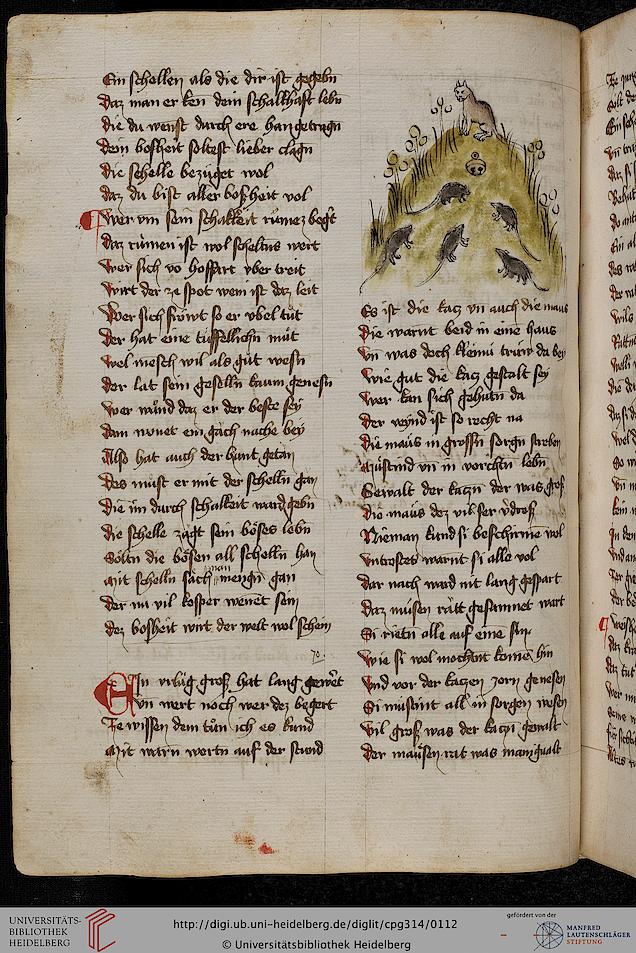 Ein schellen als die dir ist gegebn
Daz man er ken dein schalkhaft lebn
die du wenst durch ere han getragn
dein bosheit soltest lieber clagn
die schelle bezüget wol
daz du bist aller boßheit vol
wer vm sein schalkeit rümez begt
Daz rümen ist wol scheltns wert
wer sich vo hoffart vber treit
wirt der ze spot wem ist daz leit
Wer sich fröwt so er vbel tüt
der hat eine tüffellichn müt
wel mesch wil als güt wesn
der lat sein geselln kaum genesn
wer wand daz er der beste sey
dam wonet ein gach nache bey
Also hat auch der hunt getan
Des must er mit der schelln gan
Die im durch schalkeit ward gebn
die schelle zügt sein böses lebn
Soltn die bösen all schelln han
mit schelln säch man mengn gan
der nu vil kosper wenet sein
dez bosheit wirt der welt wol schein
70.
Ain vrlüg groß hat lang gewert
vn wert noch wer dez begert
Ze wissen dem tün ich es kund
mit warn wortn auf der stund
Es ist die kacz vn auch die maus
Die warnt beid in eine haus
vn was doch kleinü trüw da bey
wie güt die kacz gestalt sey
wer kan sich gehütn da
der veynd ist so recht na
die maüs in grossn sorgn strebn
müstind vn in vorchtn lebn
Gewalt der kaczn der was groß
die maüs dez vil ser v̈droß
Nieman kund si beschirmē wol
vntrostes warnt si alle vol
dar nach ward nit lang gespart
daz müsen rätt gesamnet wart
Si rietn alle auf eine sin
wie si wol mochtnt komē hin
vnd vor der kaczen zorn genesen
Si müsint all in sorgen wesen
vil groß was der kaczn gewalt
der maüsen rat was manigualt
UNIVERSITÄTS-
BIBLIOTHEK
HEIDELBERG
http://digi.ub.uni-heidelberg.de/diglit/cpg314/0112
© Universitätsbibliothek Heidelberg
gefördert von der
MANFRED
LAUTENSCHLÄGER
STIFTUNG